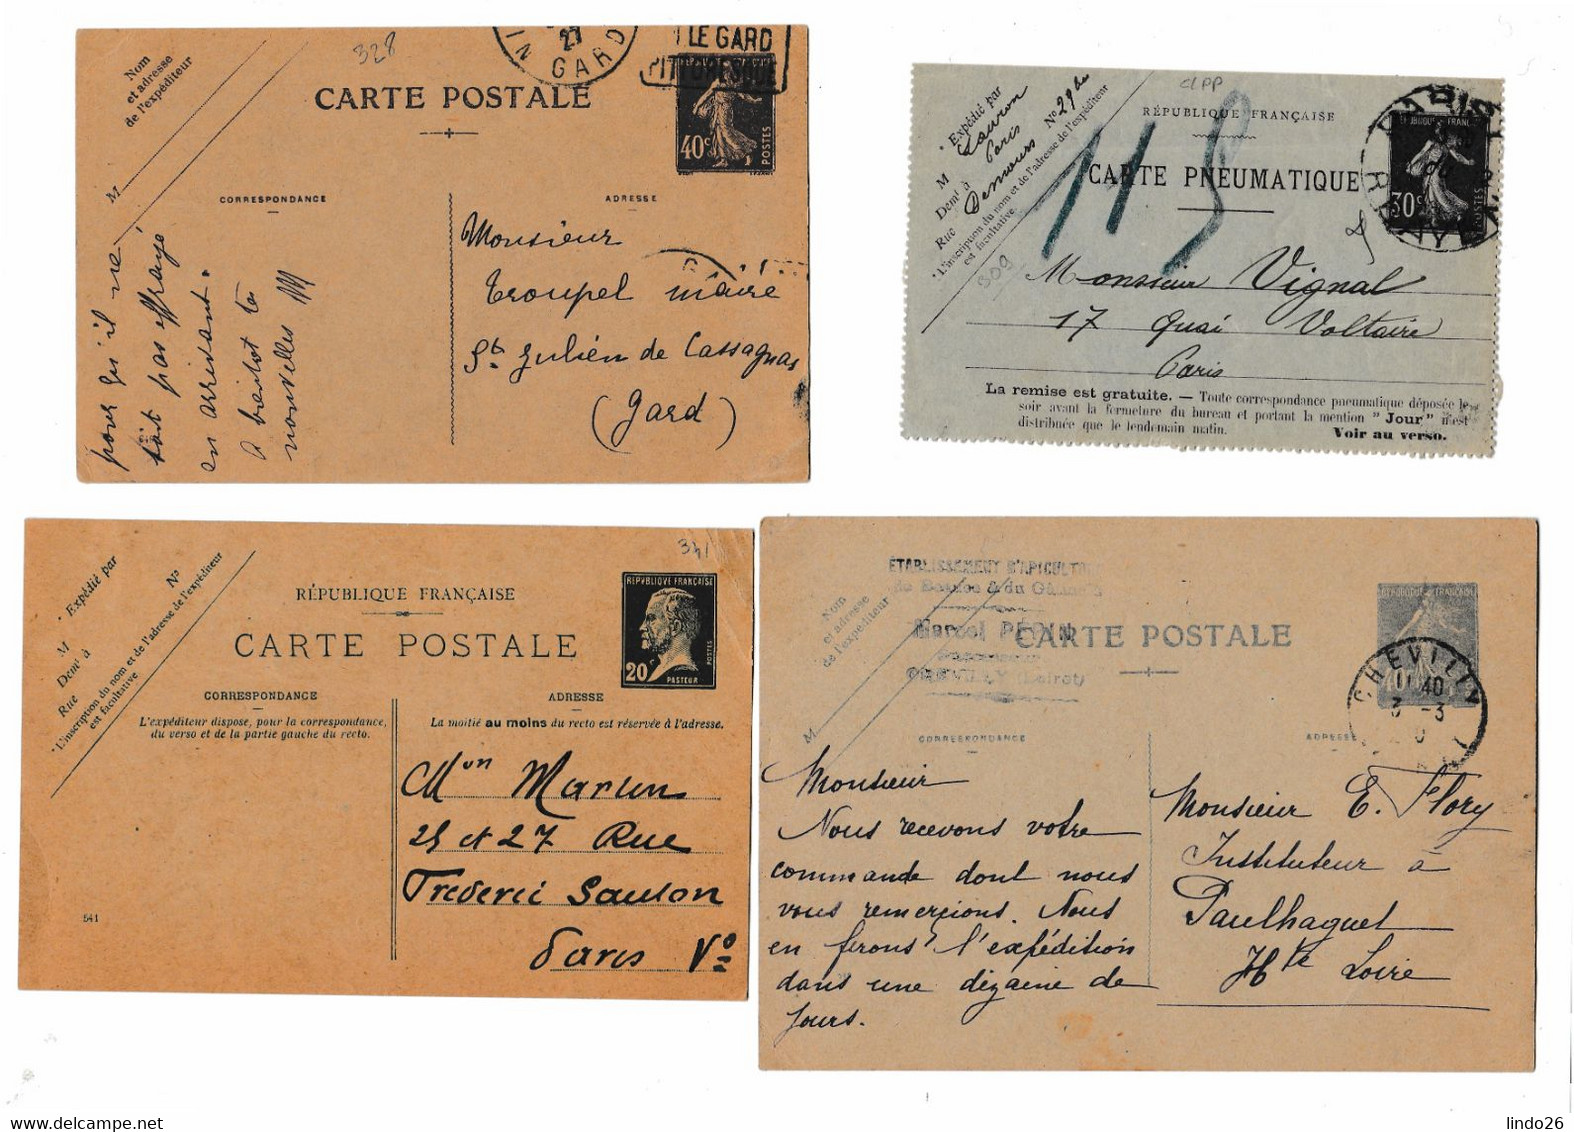 328
27
GARD
LE GARD
Nom
et adresse
de l'expéditeur
M
CARTE POSTALE
40c
POSTES
CORRESPONDANCE
ADRESSE
Monsieur
Troupel maire
St Julien de Cassagnas
(Gard)
pour qu'il ne
soit pas effrayé
en arrivant.
A bientôt tes
nouvelles
CLPP
Expédié par
M Lauron
Demt à Paris
Rue Demours
No 29 bis
L'inscription du nom et de l'adresse de l'expéditeur
est facultative
309
RÉPUBLIQUE FRANÇAISE
CARTE PNEUMATIQUE
30c
POSTES
Monsieur Vignal
17 Quai Voltaire
Paris
La remise est gratuite. — Toute correspondance pneumatique déposée le
soir avant la fermeture du bureau et portant la mention "Jour" n'est
distribuée que le lendemain matin.
Voir au verso.
341
Expédié par
M
Demt à
Rue
No
L'inscription du nom et de l'adresse de l'expéditeur
est facultative
RÉPUBLIQUE FRANÇAISE
CARTE POSTALE
REPVBLIQVE FRANÇAISE
20c
POSTES
PASTEUR
CORRESPONDANCE
L'expéditeur dispose, pour la correspondance,
du verso et de la partie gauche du recto.
ADRESSE
La moitié au moins du recto est réservée à l'adresse.
Mon Martin
25 et 27 Rue
Frederic Sauton
Paris Vo
541
ETABLISSEMENT D'APICULTURE
de Beauce & du Gâtinais
Marcel PÉPIN
CHEVILLY (Loiret)
Nom
et adresse
de l'expéditeur
M
CARTE POSTALE
40c
CHEVILLY
11 40
3 -3
CORRESPONDANCE
ADRESSE
Monsieur
Nous recevons votre
commande dont nous
vous remercions. Nous
en ferons l'expédition
dans une dizaine de
jours.
Monsieur E. Flory
Instituteur à
Paulhaguet
Hte Loire
lindo26